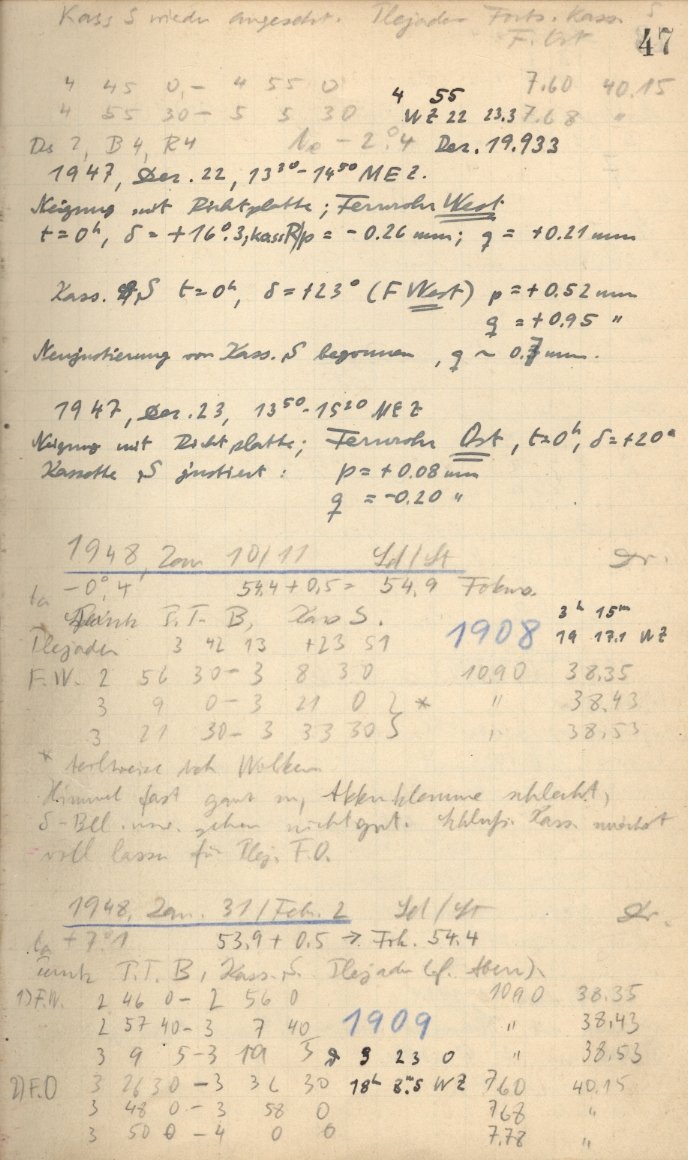 Kass S wieder angesetzt. Plejaden Forts. Kass. S
F. Ost 47
4 45 0 - 4 55 0 7.60 40.15
4 55
4 55 30 - 5 5 30 WZ 22 23.3 7.68 "
Ds 2, B4, R4 - 2°.4 Dez. 19.933
1947, Dez. 22, 13³⁰-14⁵⁰ MEZ.
Neigung mit Richtplatte; Fernrohr West
t=0ʰ, δ=+16°.3, Kass R/ p = -0.26 mm; q = +0.21 mm
Kass. S t=0ʰ, δ=+23° (F West) p=+0.52 mm
q = +0.95 "
Neujustierung von Kass. S begonnen, q ~ 0.7 mm.
1947, Dez. 23, 13⁵⁰-15²⁰ MEZ
Neigung mit Richtplatte; Fernrohr Ost, t=0ʰ, δ=+20°
Kassette S justiert: p=+0.08 mm
q = -0.20 "
1948, Jan 10/11 Ld/St Dr.
ta -0°.4 54.4+0.5= 54.9 Fokus.
P.T. B, Kass S.
3ʰ 15ᵐ
Plejaden 3 42 13 +23 51 1908 19 17.1 WZ
F.W. 2 56 30 - 3 8 30 10.90 38.35
3 9 0 - 3 21 0 * " 38.43
3 21 30 - 3 33 30 " 38.53
* teilweise Wolken
Himmel fast ganz zu, Akkuklemme schlecht,
δ-Bel. gehen nicht gut. Schluß. Kass.
voll lassen für Plej. F.O.
1948, Jan. 31/Feb. 2 Ld/St Dr.
ta +7°.1 53.9+0.5 → Fok. 54.4
P.T. B, Kass. S. Plejaden
1) F.W. 2 46 0 - 2 56 0 10.90 38.35
2 57 40 - 3 7 40 1909 " 38.43
3 9 5 - 3 19 5 3 23 0 " 38.53
2) F.O 3 26 30 - 3 36 30 18ʰ 8ᵐ.5 WZ 7.60 40.15
3 48 0 - 3 58 0 7.68 "
3 50 0 - 4 0 0 7.78 "